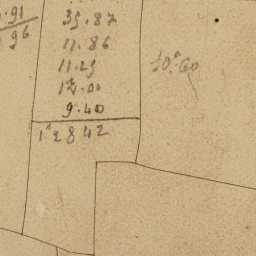 .91
96
35.87
11.86
11.29
12.00
9.40
12842